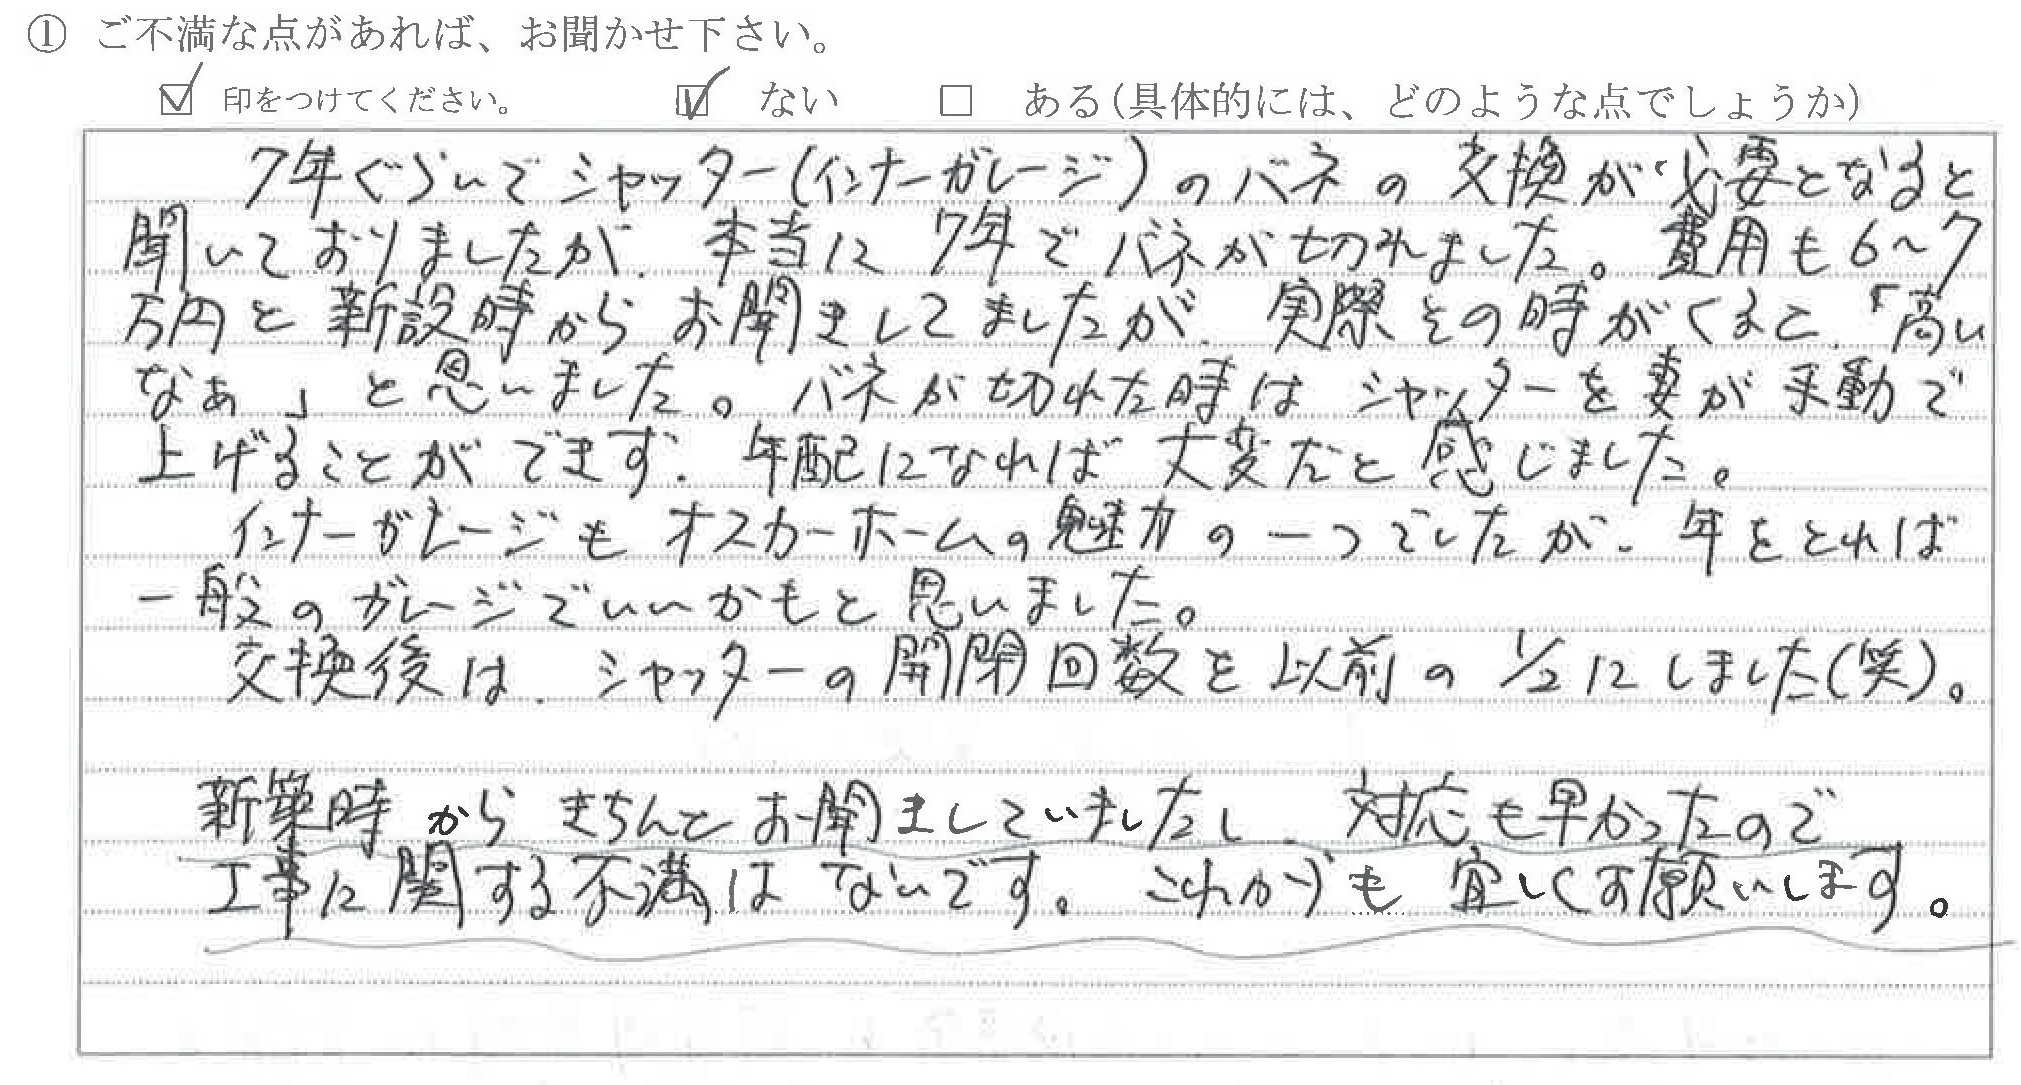 ① ご不満な点があれば、お聞かせ下さい。
☑ 印をつけてください。 ☑ ない □ ある(具体的には、どのような点でしょうか)
7年ぐらいでシャッター(インナーガレージ)のバネの交換が必要となると
聞いておりましたが、本当に7年でバネが切れました。費用も6~7
万円と新設時からお聞きしてましたが、実際その時がくると、「高い
なぁ」と思いました。バネが切れた時はシャッターを妻が手動で
上げることができず、年配になれば大変だと感じました。
インナーガレージもオスカーホームの魅力の一つでしたが、年をとれば
一般のガレージでいいかもと思いました。
交換後は、シャッターの開閉回数を以前の1/2にしました(笑)。
新築時からきちんとお聞きしていましたし、対応も早かったので
工事に関する不満はないです。これからも宜しくお願いします。